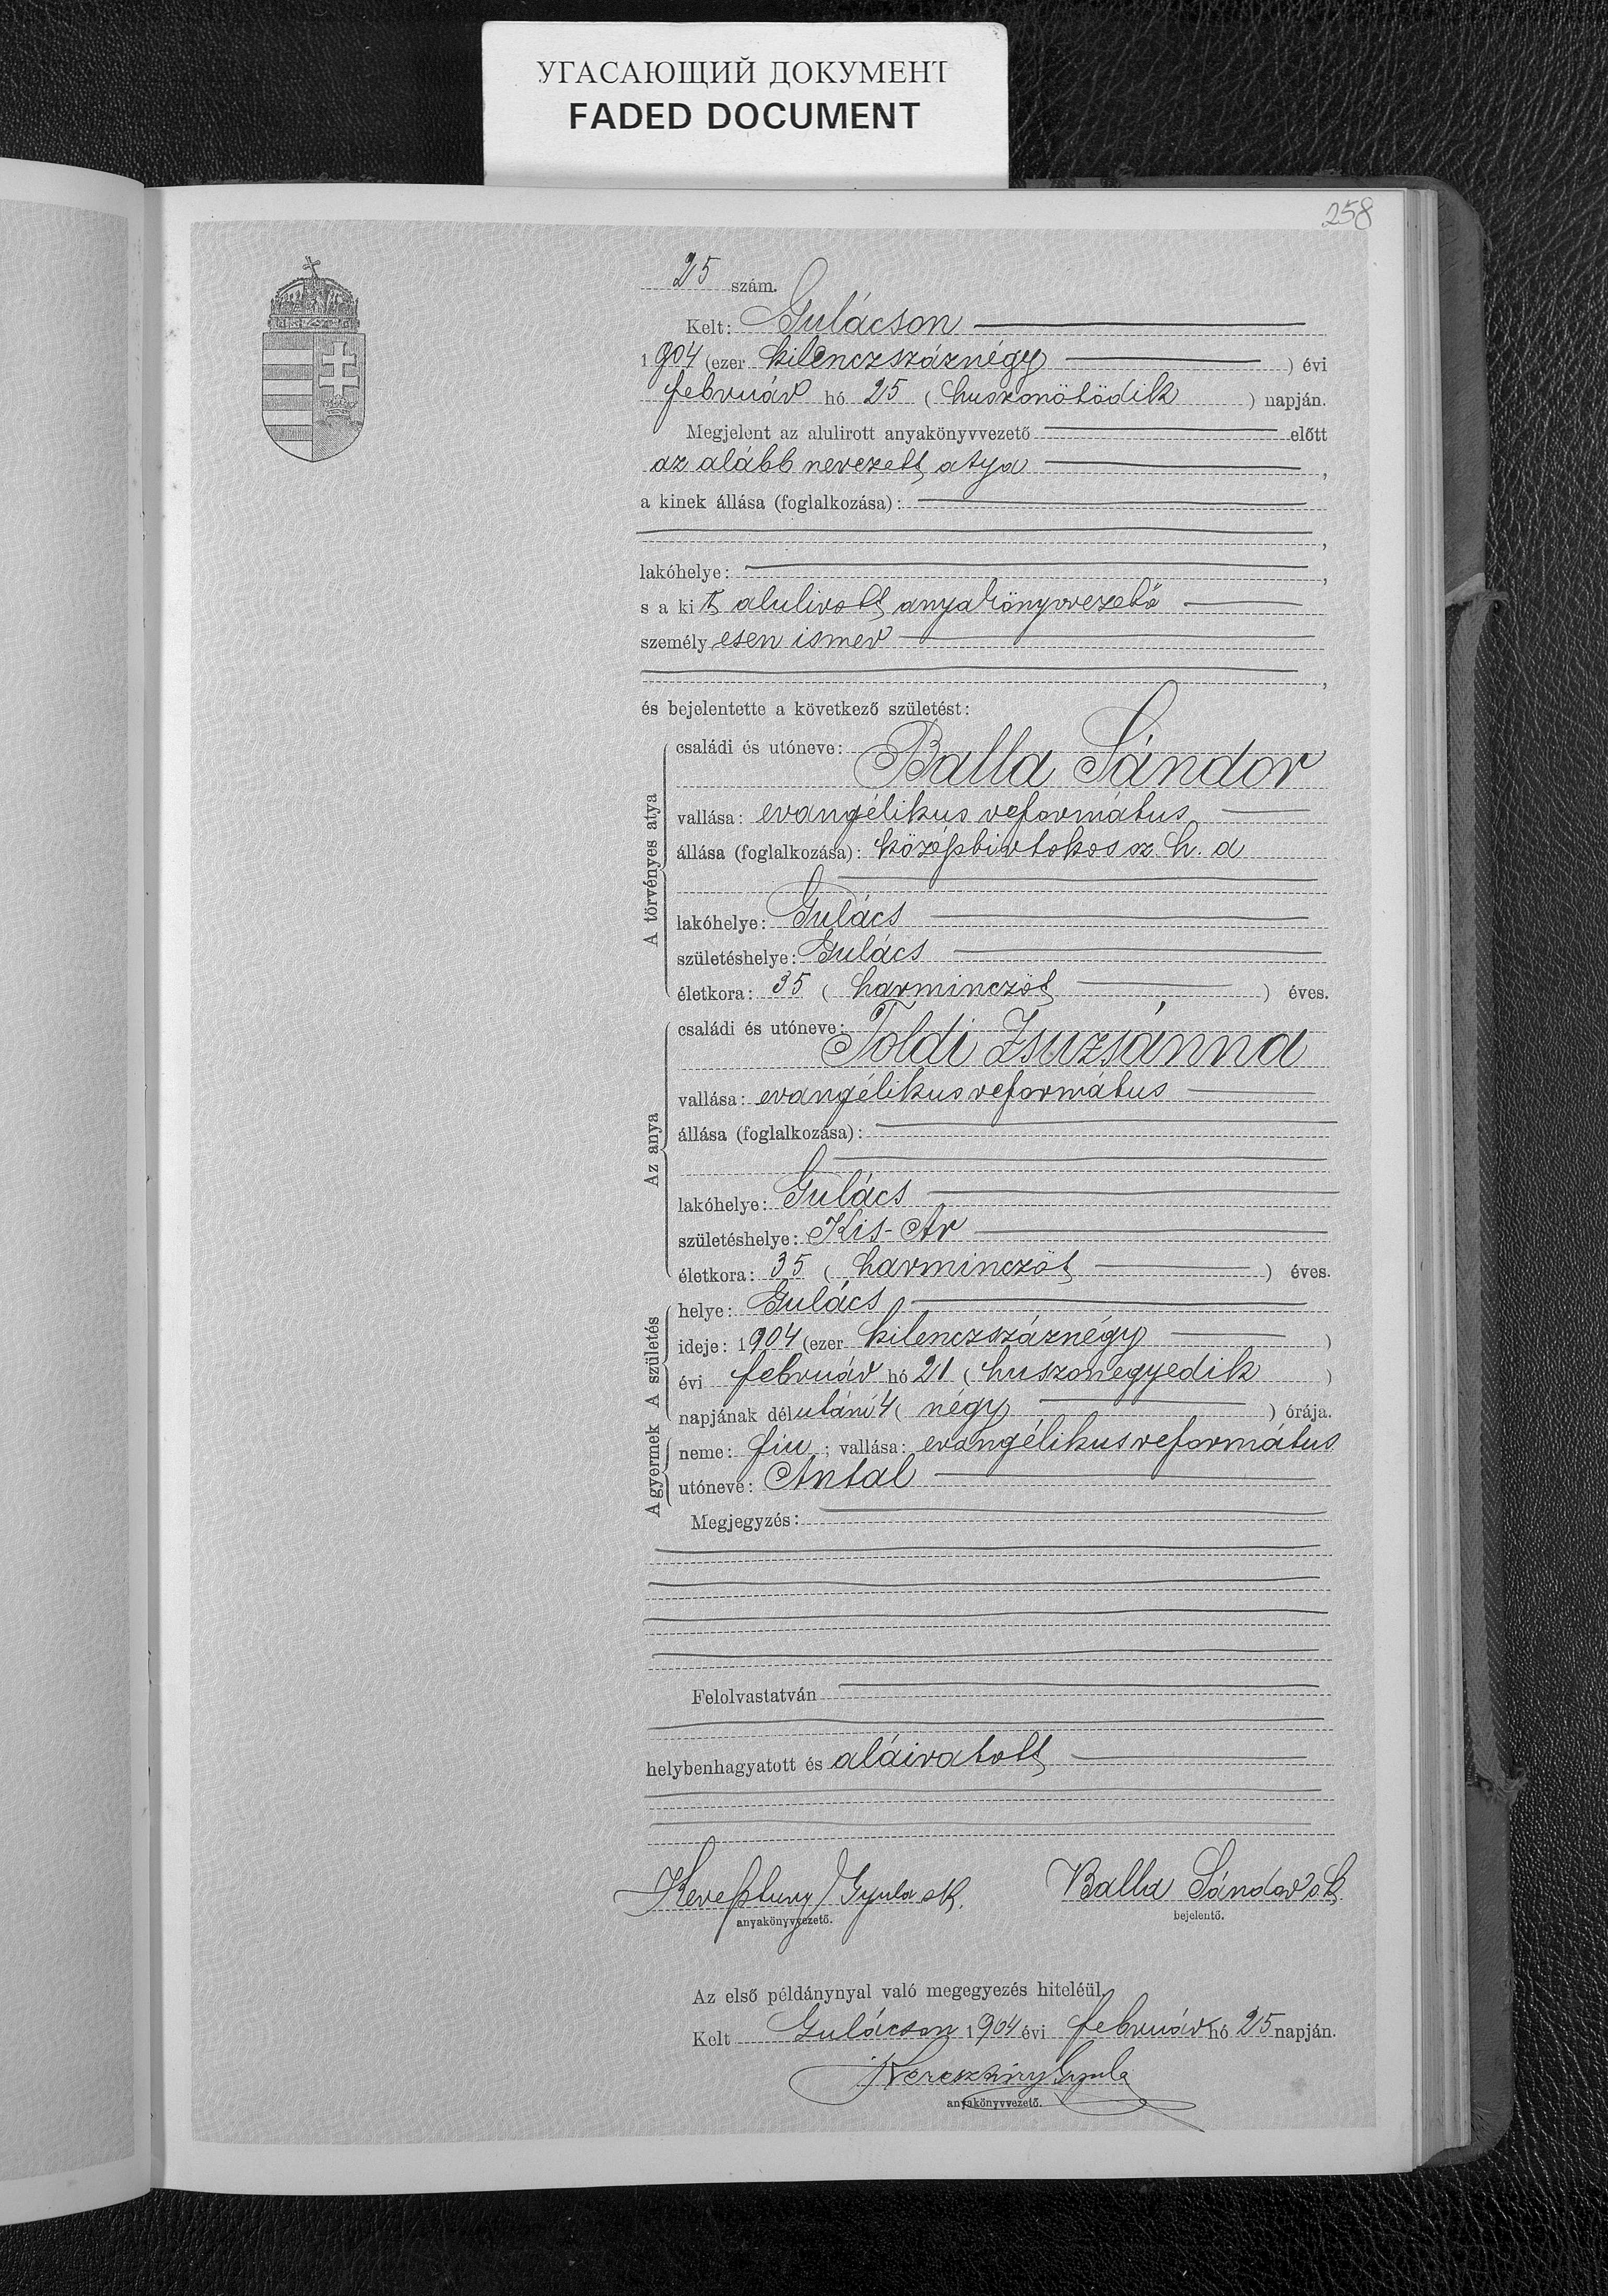 УГАСАЮЩИЙ ДОКУМЕНТ
FADED DOCUMENT
258
25 szám.
Kelt: Gulácson
1904 (ezer kilenczszáznégy ) évi
február hó 25 ( huszonötödik ) napján.
Megjelent az alulirott anyakönyvvezető előtt
az alább nevezett atya ,
a kinek állása (foglalkozása):
,
lakóhelye: ,
s a kit alulirott anyakönyvvezető
személyesen ismer
,
és bejelentette a következő születést:
A törvényes atya
családi és utóneve: Balla Sándor
vallása: evangélikus református
állása (foglalkozása): középbirtokos sz. h. a
lakóhelye: Gulács
születéshelye: Gulács
életkora: 35 ( harminczöt ) éves.
Az anya
családi és utóneve: Toldi Zsuzsánna
vallása: evangélikus református
állása (foglalkozása):
lakóhelye: Gulács
születéshelye: Kis-Ar
életkora: 35 ( harminczöt ) éves.
A születés
helye: Gulács
ideje: 1904 (ezer kilenczszáznégy )
évi február hó 21 ( huszonegyedik )
napjának délutáni 4 ( négy ) órája.
A gyermek
neme: fiu ; vallása: evangélikus református
utóneve: Antal
Megjegyzés:
Felolvastatván
helybenhagyatott és aláiratott
Gyula sk. Balla Sándor sk.
anyakönyvvezető. bejelentő.
Az első példánynyal való megegyezés hiteléül.
Kelt Gulácson 1904 évi február hó 25 napján.
Gyula
anyakönyvvezető.